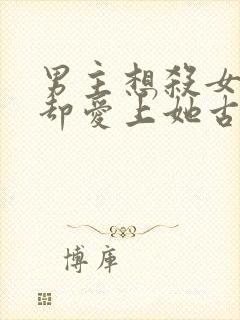 男主想殺女
却愛上她古
博庫